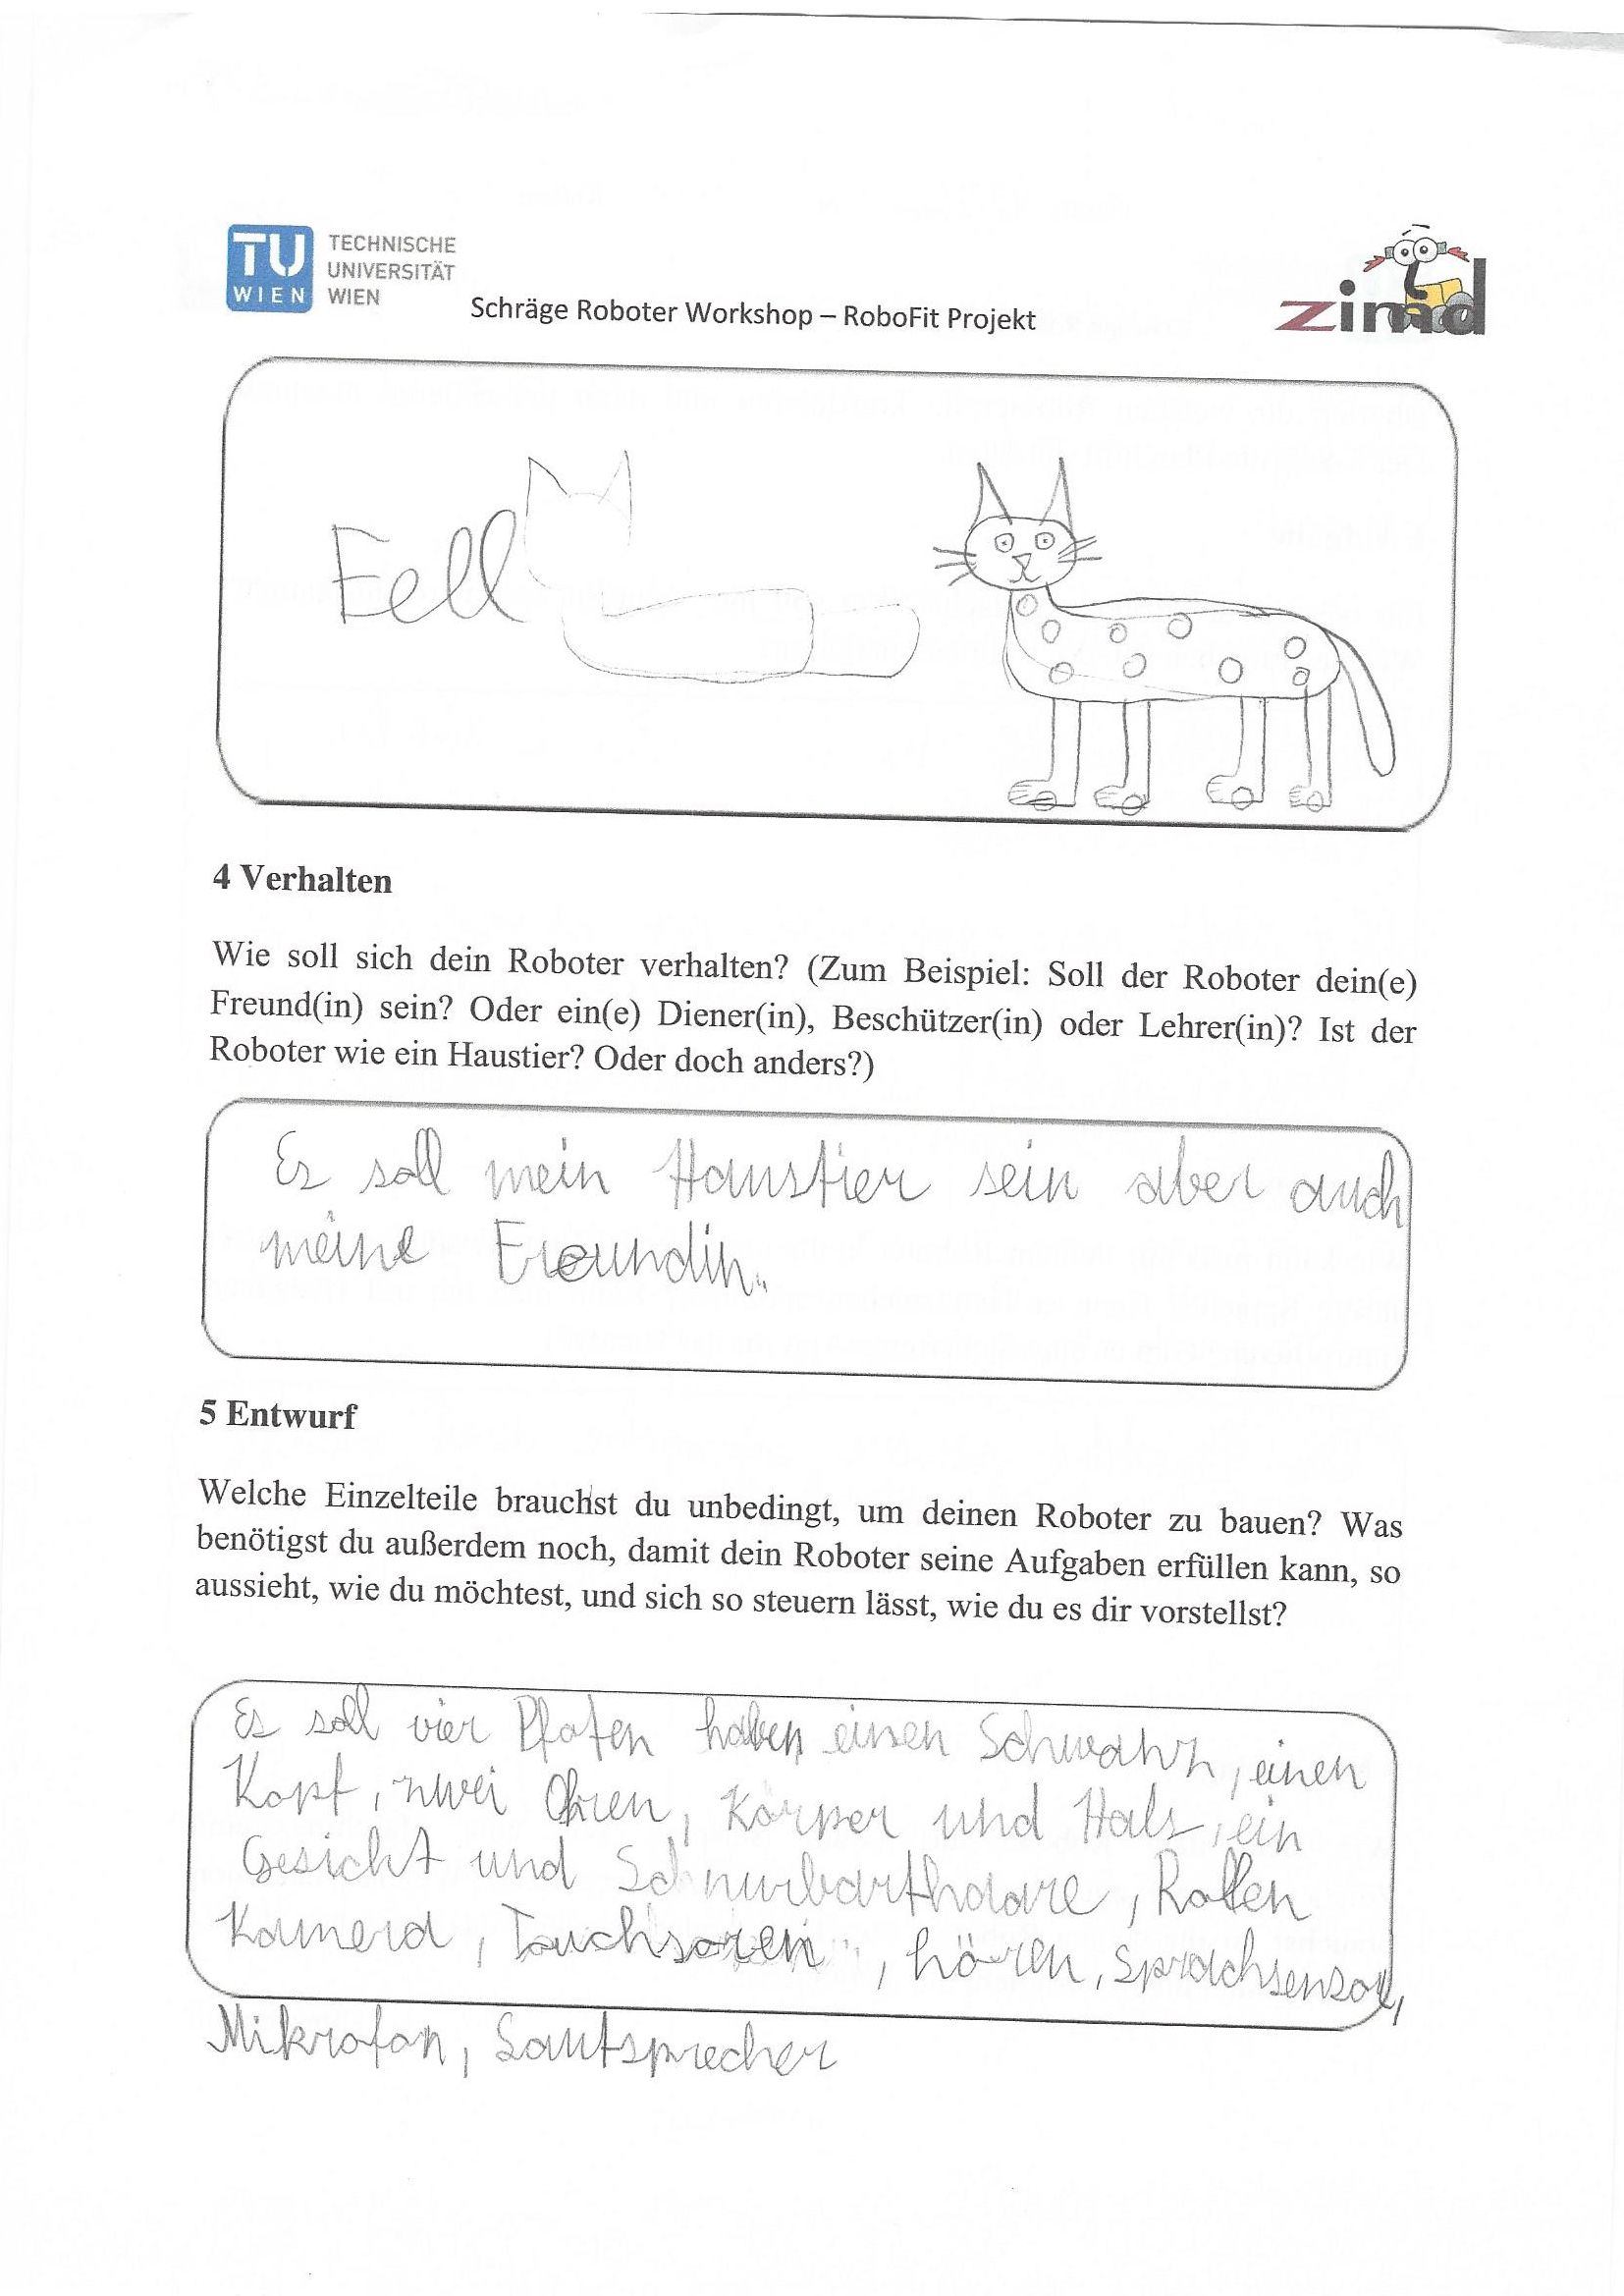 TU
WIEN
TECHNISCHE
UNIVERSITÄT
WIEN
Schräge Roboter Workshop – RoboFit Projekt
zimd
Fell
4 Verhalten
Wie soll sich dein Roboter verhalten? (Zum Beispiel: Soll der Roboter dein(e)
Freund(in) sein? Oder ein(e) Diener(in), Beschützer(in) oder Lehrer(in)? Ist der
Roboter wie ein Haustier? Oder doch anders?)
Es soll mein Haustier sein aber auch
meine Freundin.
5 Entwurf
Welche Einzelteile brauchst du unbedingt, um deinen Roboter zu bauen? Was
benötigst du außerdem noch, damit dein Roboter seine Aufgaben erfüllen kann, so
aussieht, wie du möchtest, und sich so steuern lässt, wie du es dir vorstellst?
Es soll vier Pfoten haben einen Schwanz, einen
Kopf, zwei Ohren, Körper und Hals, ein
Gesicht und Schnurbarthaare, Rollen
Kamera, , hören, Sprachsensor,
Mikrofon, Lautsprecher